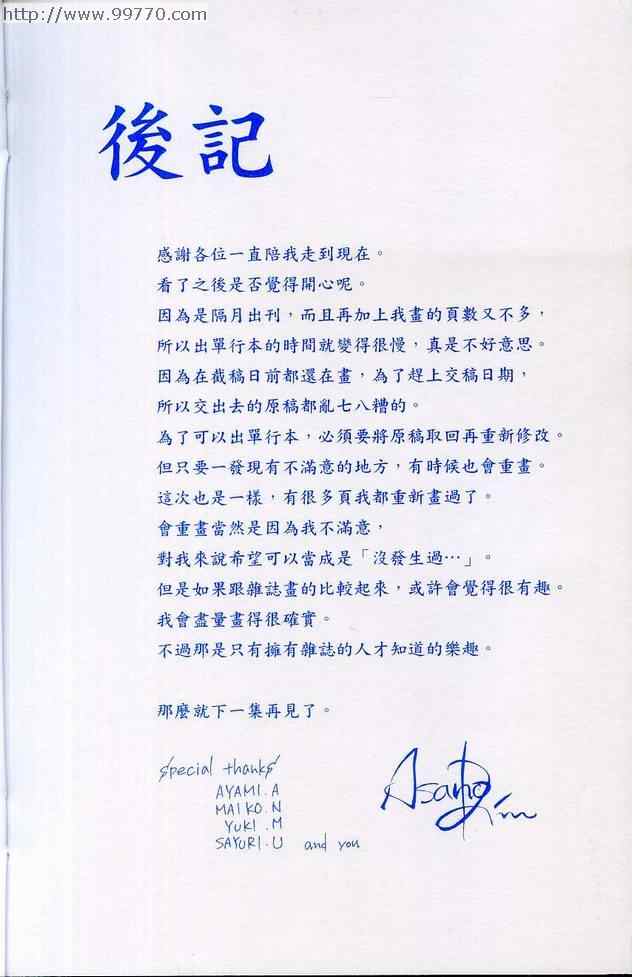 http://www.99770.com
後記
感謝各位一直陪我走到現在。
看了之後是否覺得開心呢。
因為是隔月出刊，而且再加上我畫的頁數又不多，
所以出單行本的時間就變得很慢，真是不好意思。
因為在截稿日前都還在畫，為了趕上交稿日期，
所以交出去的原稿都亂七八糟的。
為了可以出單行本，必須要將原稿取回再重新修改。
但只要一發現有不滿意的地方，有時候也會重畫。
這次也是一樣，有很多頁我都重新畫過了。
會重畫當然是因為我不滿意，
對我來說希望可以當成是「沒發生過…」。
但是如果跟雜誌畫的比較起來，或許會覺得很有趣。
我會盡量畫得很確實。
不過那是只有擁有雜誌的人才知道的樂趣。
那麼就下一集再見了。
special thanks
AYAMI.A
MAIKO.N
YUKI.M
SAYURI.U and you